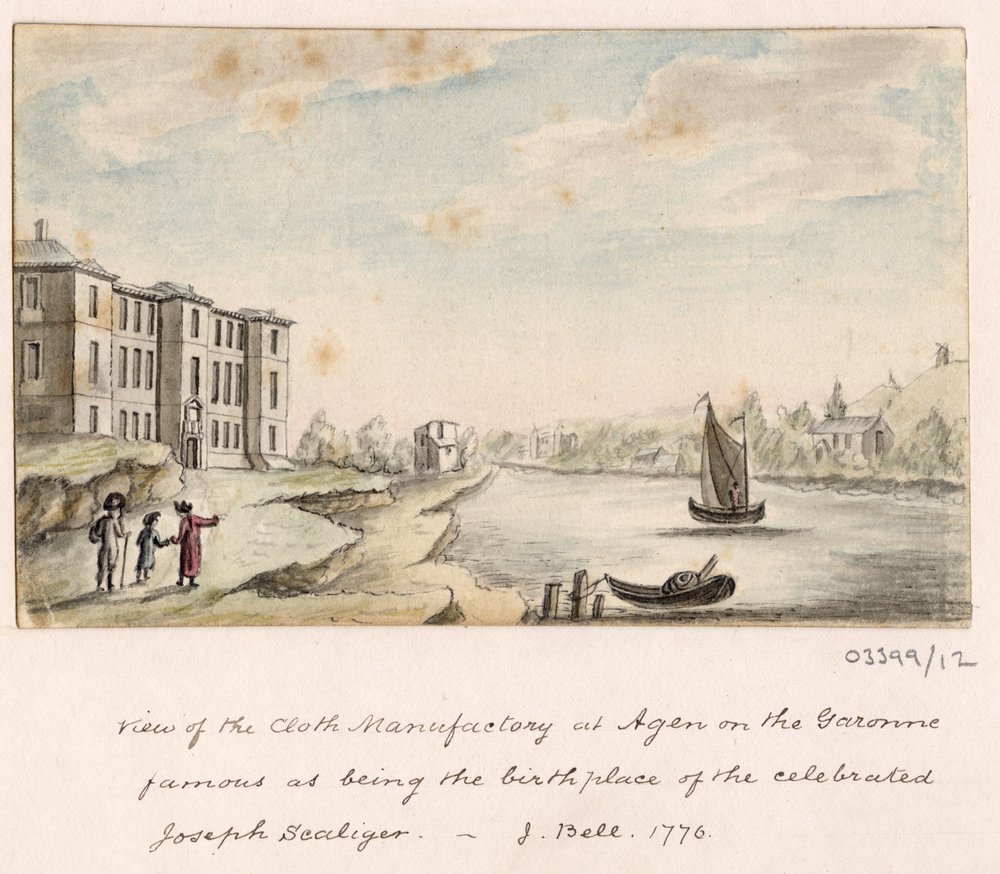 03399/12
View of the Cloth Manufactory at Agen on the Garonne
famous as being the birthplace of the celebrated
Joseph Scaliger. – J. Bell. 1776.